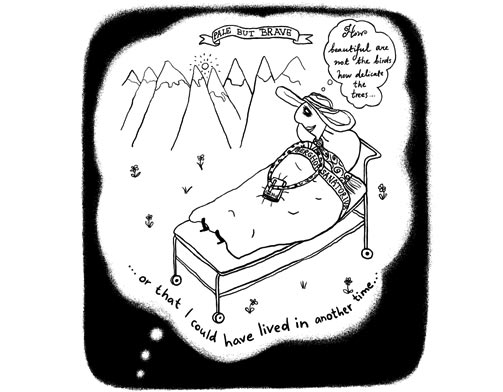 PALE BUT BRAVE
How
beautiful are
not the birds
how delicate
the
trees...
...or that I could have lived in another time...